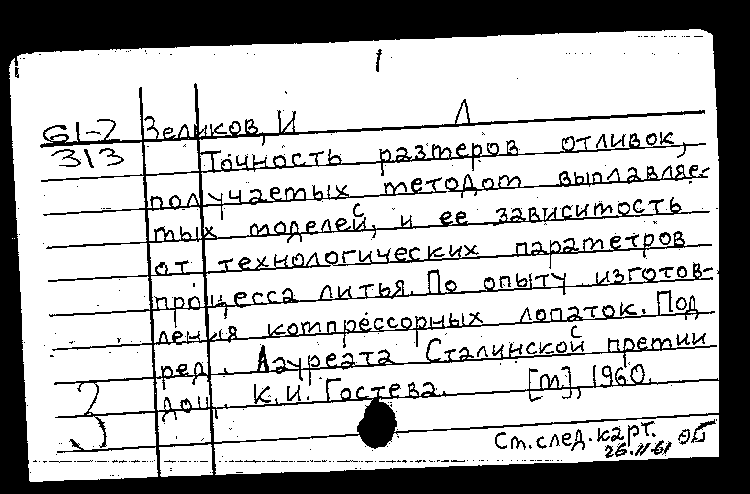 1
61-7 Зеликов, И Л
313 Точность размеров отливок,
получаемых методом выплавляе-
мых моделей, и ее зависимость
от технологических параметров
процесса литья. По опыту изготов-
ления компрессорных лопаток. Под
ред. Лауреата Сталинской премии
доц. К.И. Гостева. [М], 1960.
З
См. след. карт.
26.II-61 ОБ